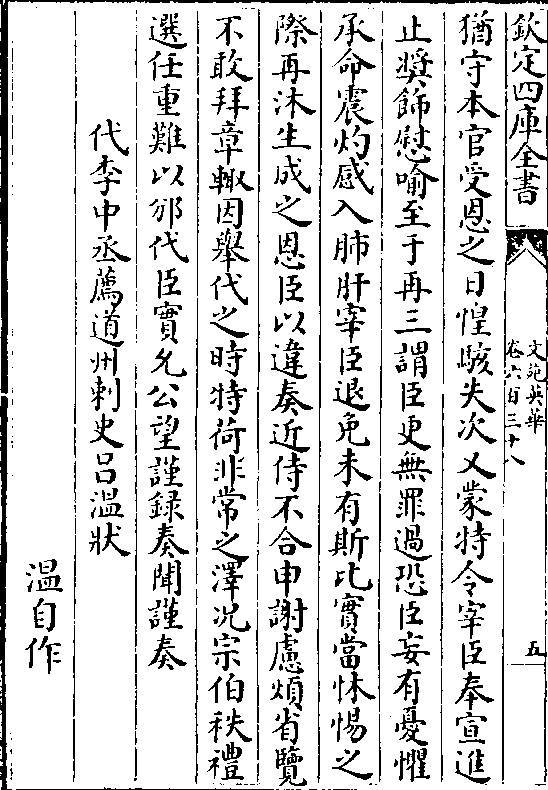 欽定四庫全書
文苑英華
卷六百三十八
五
猶守本官受恩之日惶駭失次又蒙特令宰臣奉宣進
止奬飾慰喻至于再三謂臣更無罪過恐臣妄有憂懼
承命震灼感入肺肝宰臣退免未有斯比實當怵惕之
際再沐生成之恩臣以違奏近侍不合申謝慮煩省覽
不敢拜章輙因舉代之時特荷非常之澤況宗伯秩禮
選任重難以邠代臣實允公望謹録奏聞謹奏
代李中丞薦道州刺史呂溫狀
溫自作